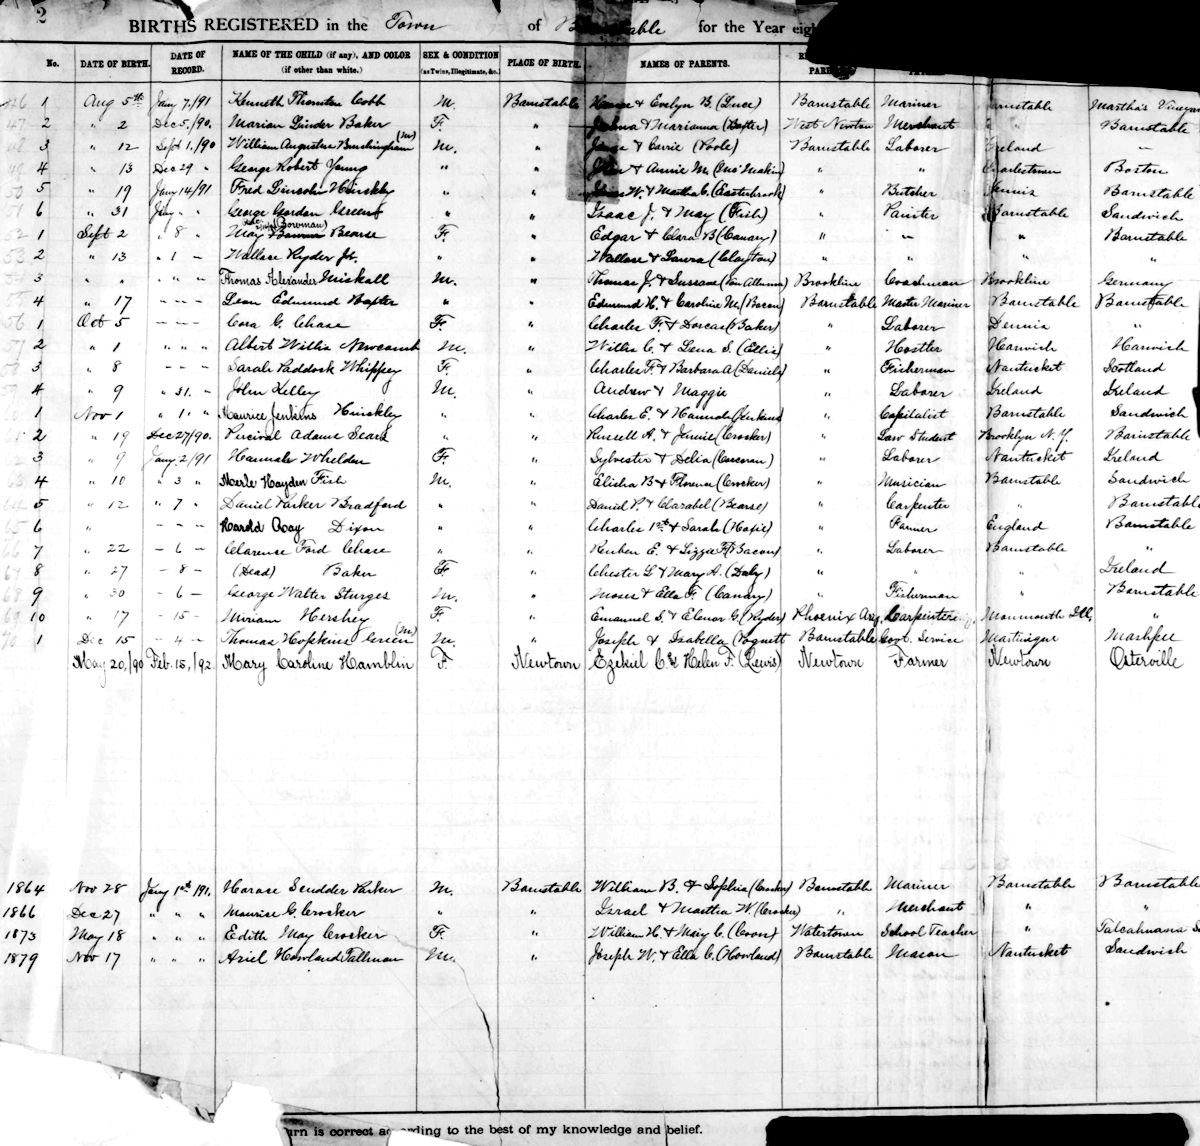 2
BIRTHS REGISTERED in the Town of Barnstable for the Year eigh
No. DATE OF BIRTH. DATE OF RECORD. NAME OF THE CHILD (if any), AND COLOR (if other than white.) SEX & CONDITION (as Twins, Illegitimate, &c.) PLACE OF BIRTH. NAMES OF PARENTS.
1 Aug 5th Jany 7,/91 Kenneth Thornton Cobb M. Barnstable & Evelyn B. (Luce) Barnstable Mariner Barnstable Martha's Vineyar
2 " 2 Dec 5,/90. Marian Linder Baker F. " & Marianna (Baxter) West Newton Merchant " Barnstable
3 " 12 Sept 1,/90 William Augustus Buckingham (M) M. " James & Carrie (Poole) Barnstable Laborer Ireland —
4 " 13 Dec 29 " George Robert Young " " John & Annie M. " " Charlestown Boston
50 5 " 19 Jany 14/91 Fred Lincoln Hinckley " " James W. & Martha C. (Easterbrook) " Butcher Dennis Barnstable
51 6 " 31 Jany " " George Gordon Green " " Isaac J. & May (Fish) " Painter Barnstable Sandwich
52 1 Sept 2 " 8 " May (Bowman) Bearse F. " Edgar & Clara B (Canary) " " — " Barnstable
53 2 " 13 " 1 — Wallace Ryder Jr. " " Wallace & Laura (Clayton) "
3 " " " " — Thomas Alexander Miskall M. " Thomas J. & Sussane Brookline Coachman Brookline Germany
4 " 17 — — — Leon Edmund Baxter " " Edmund H. & Caroline M. (Bacon) Barnstable Master Mariner Barnstable Barnstable
56 1 Oct 5 — — — Cora G. Chase F. " Charles F. & Dorcas (Baker) " Laborer Dennis "
57 2 " 1 " " " Albert Willis Newcomb M. " Willis C. & Lena S. (Ellis) " Hostler Harwich Harwich
3 " 8 — — — Sarah Paddock Whippey F. " Charles F. & Barbara A (Daniels) " Fisherman Nantucket Scotland
4 " 9 " 31. — John Kelley M. " Andrew & Maggie " Laborer Ireland Ireland
1 Nov 1 " 1. " Maurice Jenkins Hinckley " " Charles E. & Hannah (Jenkins " Capitalist Barnstable Sandwich
2 " 19 Dec 27/90. Percival Adams Sears " " Russell A. & Jennie (Crocker) " Law Student Brooklyn N.Y. Barnstable
3 " 9 Jany. 2/91 Hannah Whelden F. " Sylvester & Delia (Corcoran) " Laborer Nantucket Ireland
4 " 10 " 3 " Merle Hayden Fish M. " Elisha B & Florence (Crocker) " Musician Barnstable Sandwich
5 " 12 " 7 " Daniel Parker Bradford " " Daniel P. & Clarabel (Bearse) " Carpenter " Barnstable
65 6 " — — — Harold Ray Dixon " " Charles 1st & Sarah (Hoxie) " Farmer England Barnstable
66 7 " 22 — 6 — Clarence Ford Chase " " Reuben E. & Lizzie F. (Bacon) " Laborer Barnstable "
67 8 " 27 — 8 — (Dead) Baker F. " Chester L & Mary A. (Daly) " " " Ireland
68 9 " 30 — 6 — George Walter Sturges M. " Moses & Ella F. (Canary) " Fisherman " Barnstable
69 10 " 17 — 15 — Miriam Hershey F. " Emanuel S. & Elenor G. (Ryder) Phoenix Ariz. Carpentering Monmouth Ill, "
70 1 Dec 15 — 4 — Thomas Hopkins Green (M) M. " Joseph & Isabella (Pognett Barnstable Govt. Service Martinique Mashpee
May 20,/90 Feb. 15,/92. Mary Caroline Hamblin F. Newtown Ezekiel C. & Helen F. (Lewis) Newtown Farmer Newtown Osterville
1864 Nov 28 Jany 1st 191. Horace Scudder Parker M. Barnstable William B. & Sophia (Crocker) Barnstable Mariner Barnstable Barnstable
1866 Dec 27 " " " Maurice G. Crocker " " Israel & Martha W. (Crocker) " Merchant " "
1873 May 18 " " " Edith May Crocker F. " William H. & Mary C. (Coon) Watertown School Teacher " Talcahuana S
1879 Nov 17 " " " Ariel Howland Tallman M. " Joseph W. & Ella C. (Howland) Barnstable Mason Nantucket Sandwich
urn is correct according to the best of my knowledge and belief.